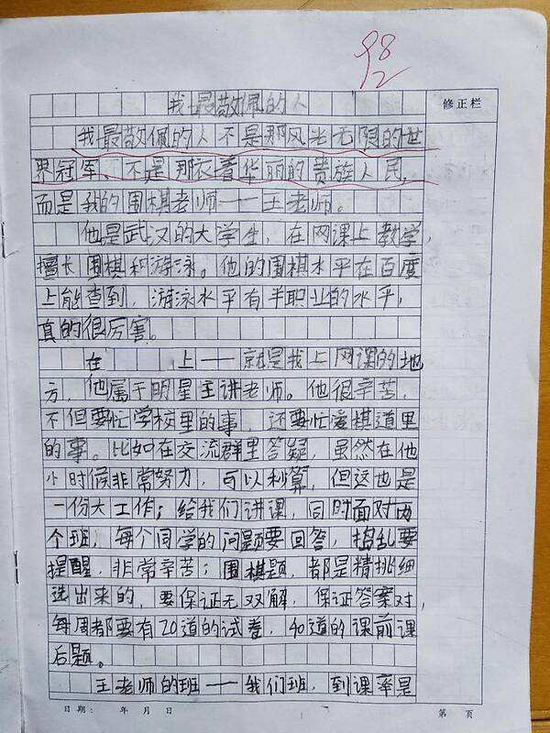 98
2
修正栏
我最敬佩的人
我最敬佩的人不是那风光无限的世
界冠军,不是那衣着华丽的贵族人民,
而是我的围棋老师——王老师。
他是武汉的大学生,在网课上教学,
擅长围棋和游泳。他的围棋水平在百度
上能查到,游泳水平有半职业的水平,
真的很厉害。
在 上——就是我上网课的地
方,他属于明星主讲老师。他很辛苦,
不但要忙学校里的事,还要忙爱棋道里
的事。比如在交流群里答疑,虽然在他
小时候非常努力,可以秒算,但这也是
一份大工作;给我们讲课,同时面对两
个班,每个同学的问题要回答,捣乱要
提醒,非常辛苦;围棋题,都是精挑细
选出来的,要保证无双解,保证答案对,
每周都要有20道的试卷,40道的课前课
后题。
王老师的班——我们班,到课率是
日期: 年 月 日
第 页